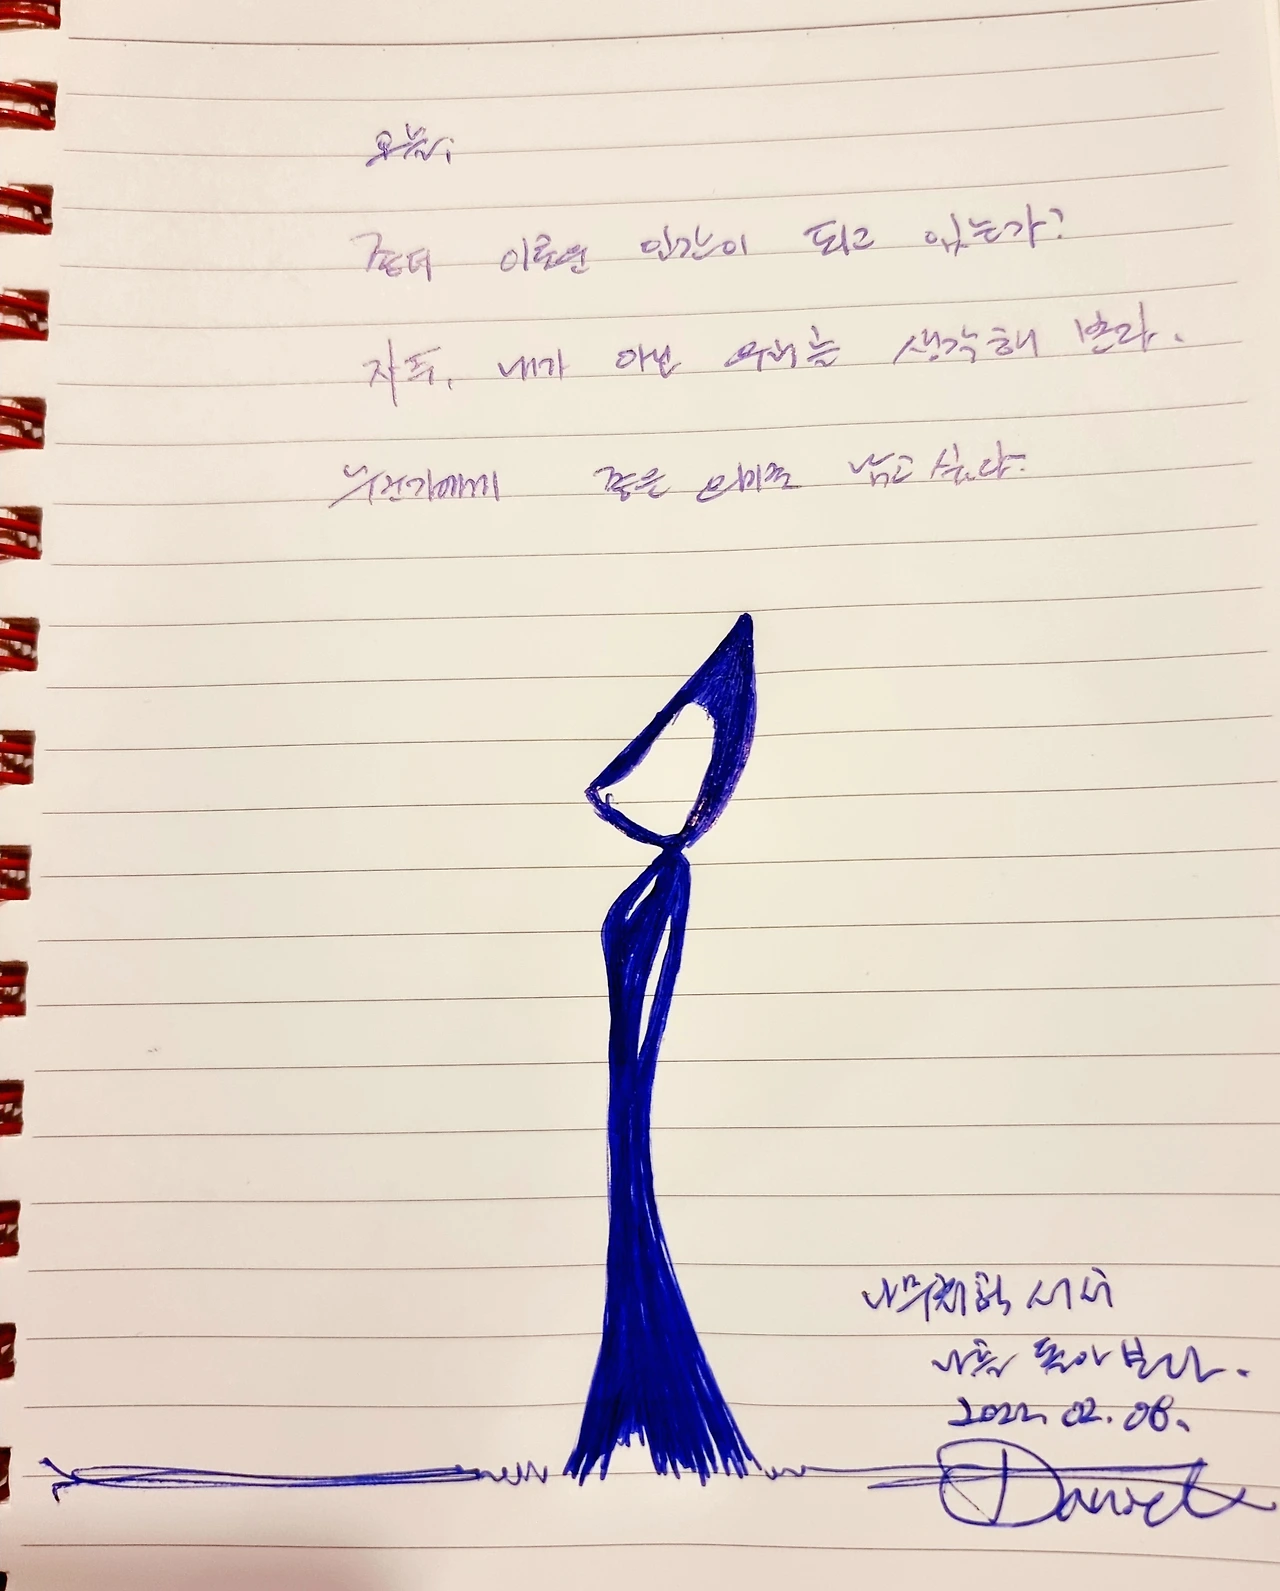 오늘,
좀더 이로운 인간이 되고 있는가?
자주, 내가 아닌 우리를 생각해 본다.
무언가에게 좋은 의미로 남고 싶다.
나무처럼 서서
나를 돌아본다.
2022. 02. 08.
Daniel